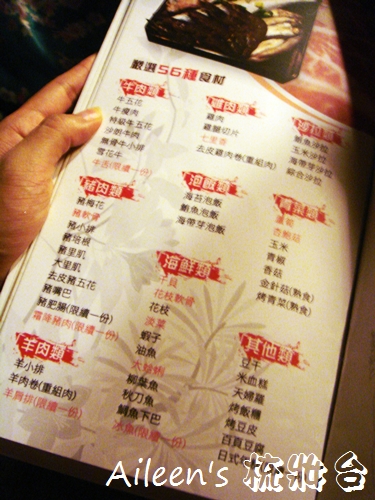 嚴選56種食材
牛肉類
牛五花
牛瘦肉
特級牛五花
沙朗牛肉
無骨牛小排
雪花牛
牛舌(限續一份)
豬肉類
豬梅花
豬軟骨
豬小排
豬培根
豬里肌
大里肌
去皮豬五花
豬嘴巴
豬肥腸(限續一份)
霜降豬肉(限續一份)
羊肉類
羊小排
羊肉卷(重組肉)
羊肩排(限續一份)
雞肉類
雞肉
雞腿切片
七里香
去皮雞肉卷(重組肉)
泡飯類
海苔泡飯
鮪魚泡飯
海帶芽泡飯
海鮮類
干貝
花枝軟骨
花枝
淡菜
蝦子
油魚
大蛤蜊
柳葉魚
秋刀魚
鯛魚下巴
(限續一份)
沙拉類
鮪魚沙拉
玉米沙拉
海帶芽沙拉
綜合沙拉
青菜類
杏鮑菇
玉米
青椒
香菇
金針菇(熟食)
烤青菜(熟食)
其他類
豆干
米血糕
天婦羅
烤飯糰
烤豆皮
百頁豆腐
日式
Aileen's 梳妝台